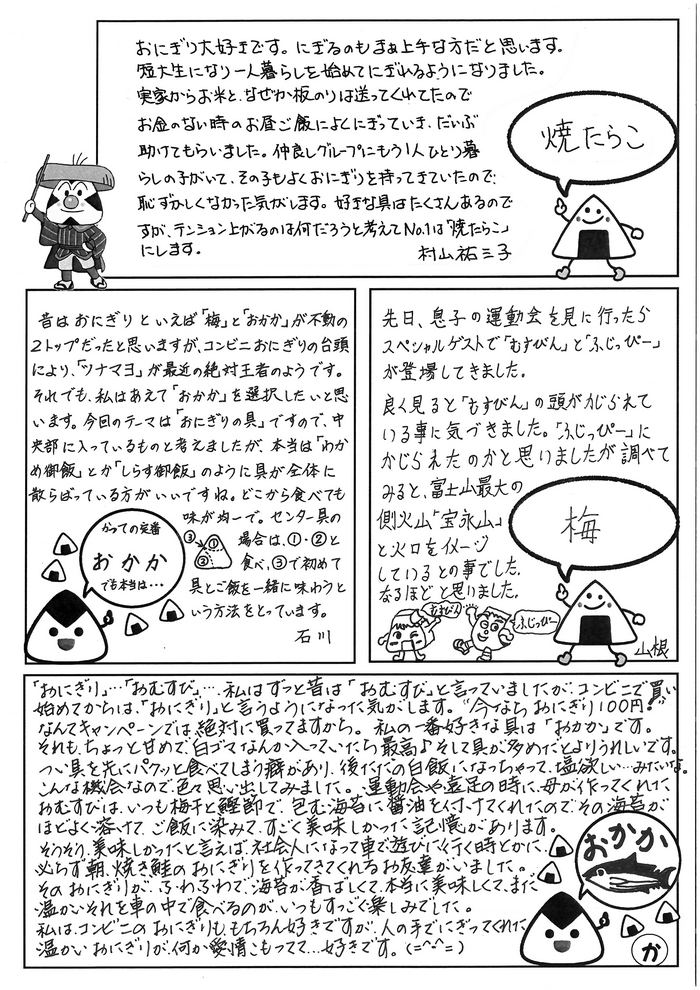 おにぎり大好きです。にぎるのもまぁ上手な方だと思います。
短大生になり一人暮らしを始めてにぎれるようになりました。
実家からお米と、なぜか板のりは送ってくれてたので
お金のない時のお昼ご飯によくにぎっていき、だいぶ
助けてもらいました。仲良しグループにもう1人ひとり暮
らしの子がいて、その子もよくおにぎりを持ってきていたので、
恥ずかしくなかった気がします。好きな具はたくさんあるので
すが、テンション上がるのは何だろうと考えてNo.1は「焼たらこ」
にします。
村山祐三子
焼たらこ
昔はおにぎりといえば「梅」と「おかか」が不動の
2トップだったと思いますが、コンビニおにぎりの台頭
により、「ツナマヨ」が最近の絶対王者のようです。
それでも、私はあえて「おかか」を選択したいと思
います。今回のテーマは「おにぎりの具」ですので、中
央部に入っているものと考えましたが、本当は「わか
め御飯」とか「しらす御飯」のように具が全体に
散らばっている方がいいですね。どこから食べても
味が均一で。センター具の
場合は、①・②と
食べ、③で初めて
具とご飯を一緒に味わうと
いう方法をとっています。
石川
③
①
②
かつての定番
おかか
でも本当は…
先日、息子の運動会を見に行ったら
スペシャルゲストで「むすびん」と「ふじっぴー」
が登場してきました。
良く見ると「むすびん」の頭がかじられて
いる事に気づきました。「ふじっぴー」に
かじられたのかと思いましたが調べて
みると、富士山最大の
側火山「宝永山」
と火口をイメージ
しているとの事でした。
なるほどと思いました。
梅
むすびん
ふじっぴー
山根
「おにぎり」…「おむすび」…、私はずっと昔は「おむすび」と言っていましたが、コンビニで買い
始めてからは、「おにぎり」と言うようになった気がします。"今ならおにぎり100円!"
なんてキャンペーンでは絶対に買ってますから。私の一番好きな具は「おかか」です。
それも、ちょっと甘めで、白ゴマなんか入っていたら最高♪そして具が多めだとよりうれしいです。
つい具を先にパクッと食べてしまう癖があり、後でただの白飯になっちゃって、塩欲しい…みたいな。
こんな機会なので色々思い出してみました。運動会や遠足の時に、母が作ってくれた
おむすびは、いつも梅干と鰹節で、包む海苔に醤油を付けてくれたので、その海苔が
ほどよく溶けて、ご飯に染みて、すごく美味しかった記憶があります。
そうそう、美味しかったと言えば、社会人になって車で遊びに行く時とかに、
必らず朝、焼き鮭のおにぎりを作ってきてくれるお友達がいました。
そのおにぎりが、ふわふわで、海苔が香ばしくて、本当に美味しくて、まだ
温かいそれを車の中で食べるのが、いつもすごく楽しみでした。
私は、コンビニのおにぎりももちろん好きですが、人の手でにぎってくれた
温かいおにぎりが、何か愛情こもってて…好きです。(=^-^=)
おかか
か